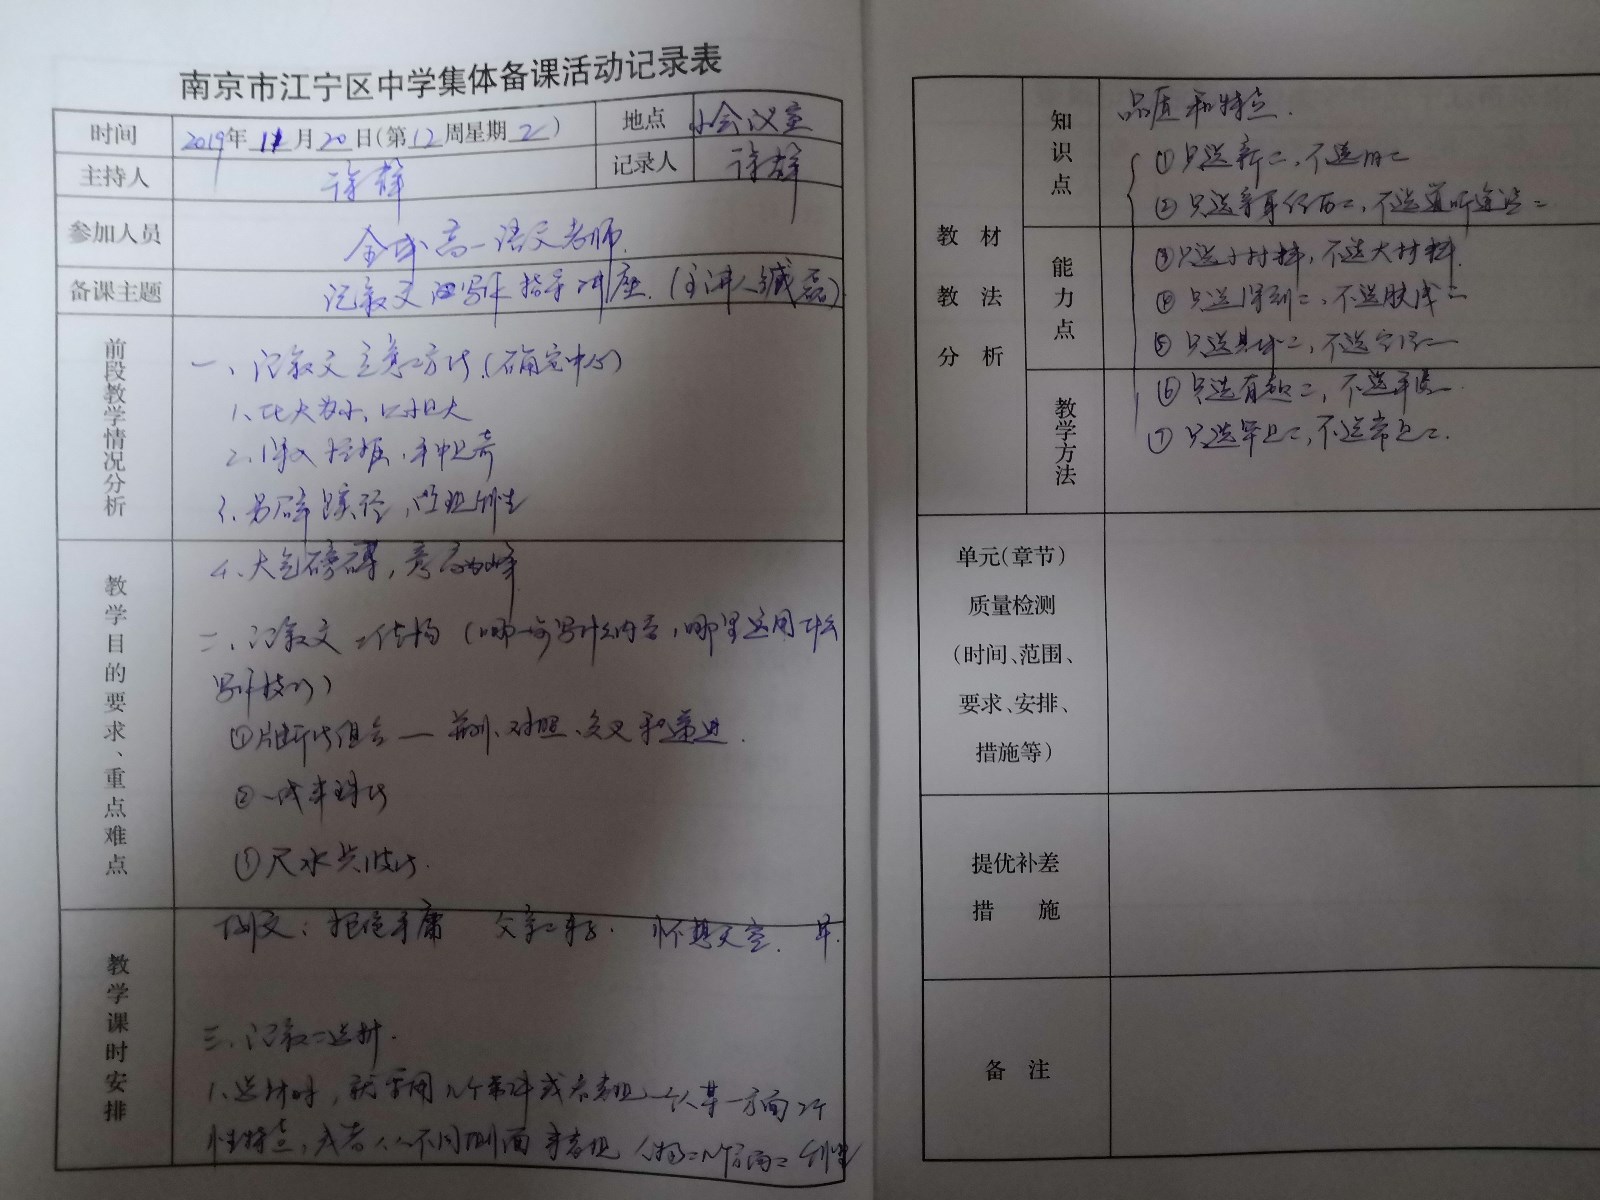 南京市江宁区中学集体备课活动记录表
时间 2019年 11 月 20 日(第 12 周星期 2 ) 地点 小会议室
主持人 记录人
参加人员 全体高一语文老师.
备课主题 记叙文写作指导讲座.(主讲人
前段教学情况分析
一、记叙文立意之方法(确定中心)
1、化大为小、以小见大
2、深入挖掘、平中见奇
3、另辟蹊径,凸现个性
教学目的要求、重点难点
4、大气磅礴,意高为峰
二、记叙文之结构(哪一句写什么内容,哪里运用什么
写作技巧)
①片断法组合— 并列、对照、交叉和递进.
②一线串珠法
③尺水兴波法.
教学课时安排
例文:拒绝平庸 父亲之 怀想天空.
三、记叙之选材.
1、选材时,就采用几个事件或者表现一个人某一方面之个
性特点,或者从不同侧面来表现人物之几个方面之
教材教法分析
知识点
品质和特点.
①只选新之,不选旧之
②只选亲身经历之,不选道听途说之
能力点
③只选小材料,不选大材料.
④只选深刻之,不选肤浅之
⑤只选具体之,不选空泛之
教学方法
⑥只选有趣之,不选平淡之.
⑦只选罕见之,不选常见之.
单元(章节)
质量检测
(时间、范围、
要求、安排、
措施等)
提优补差
措 施
备 注